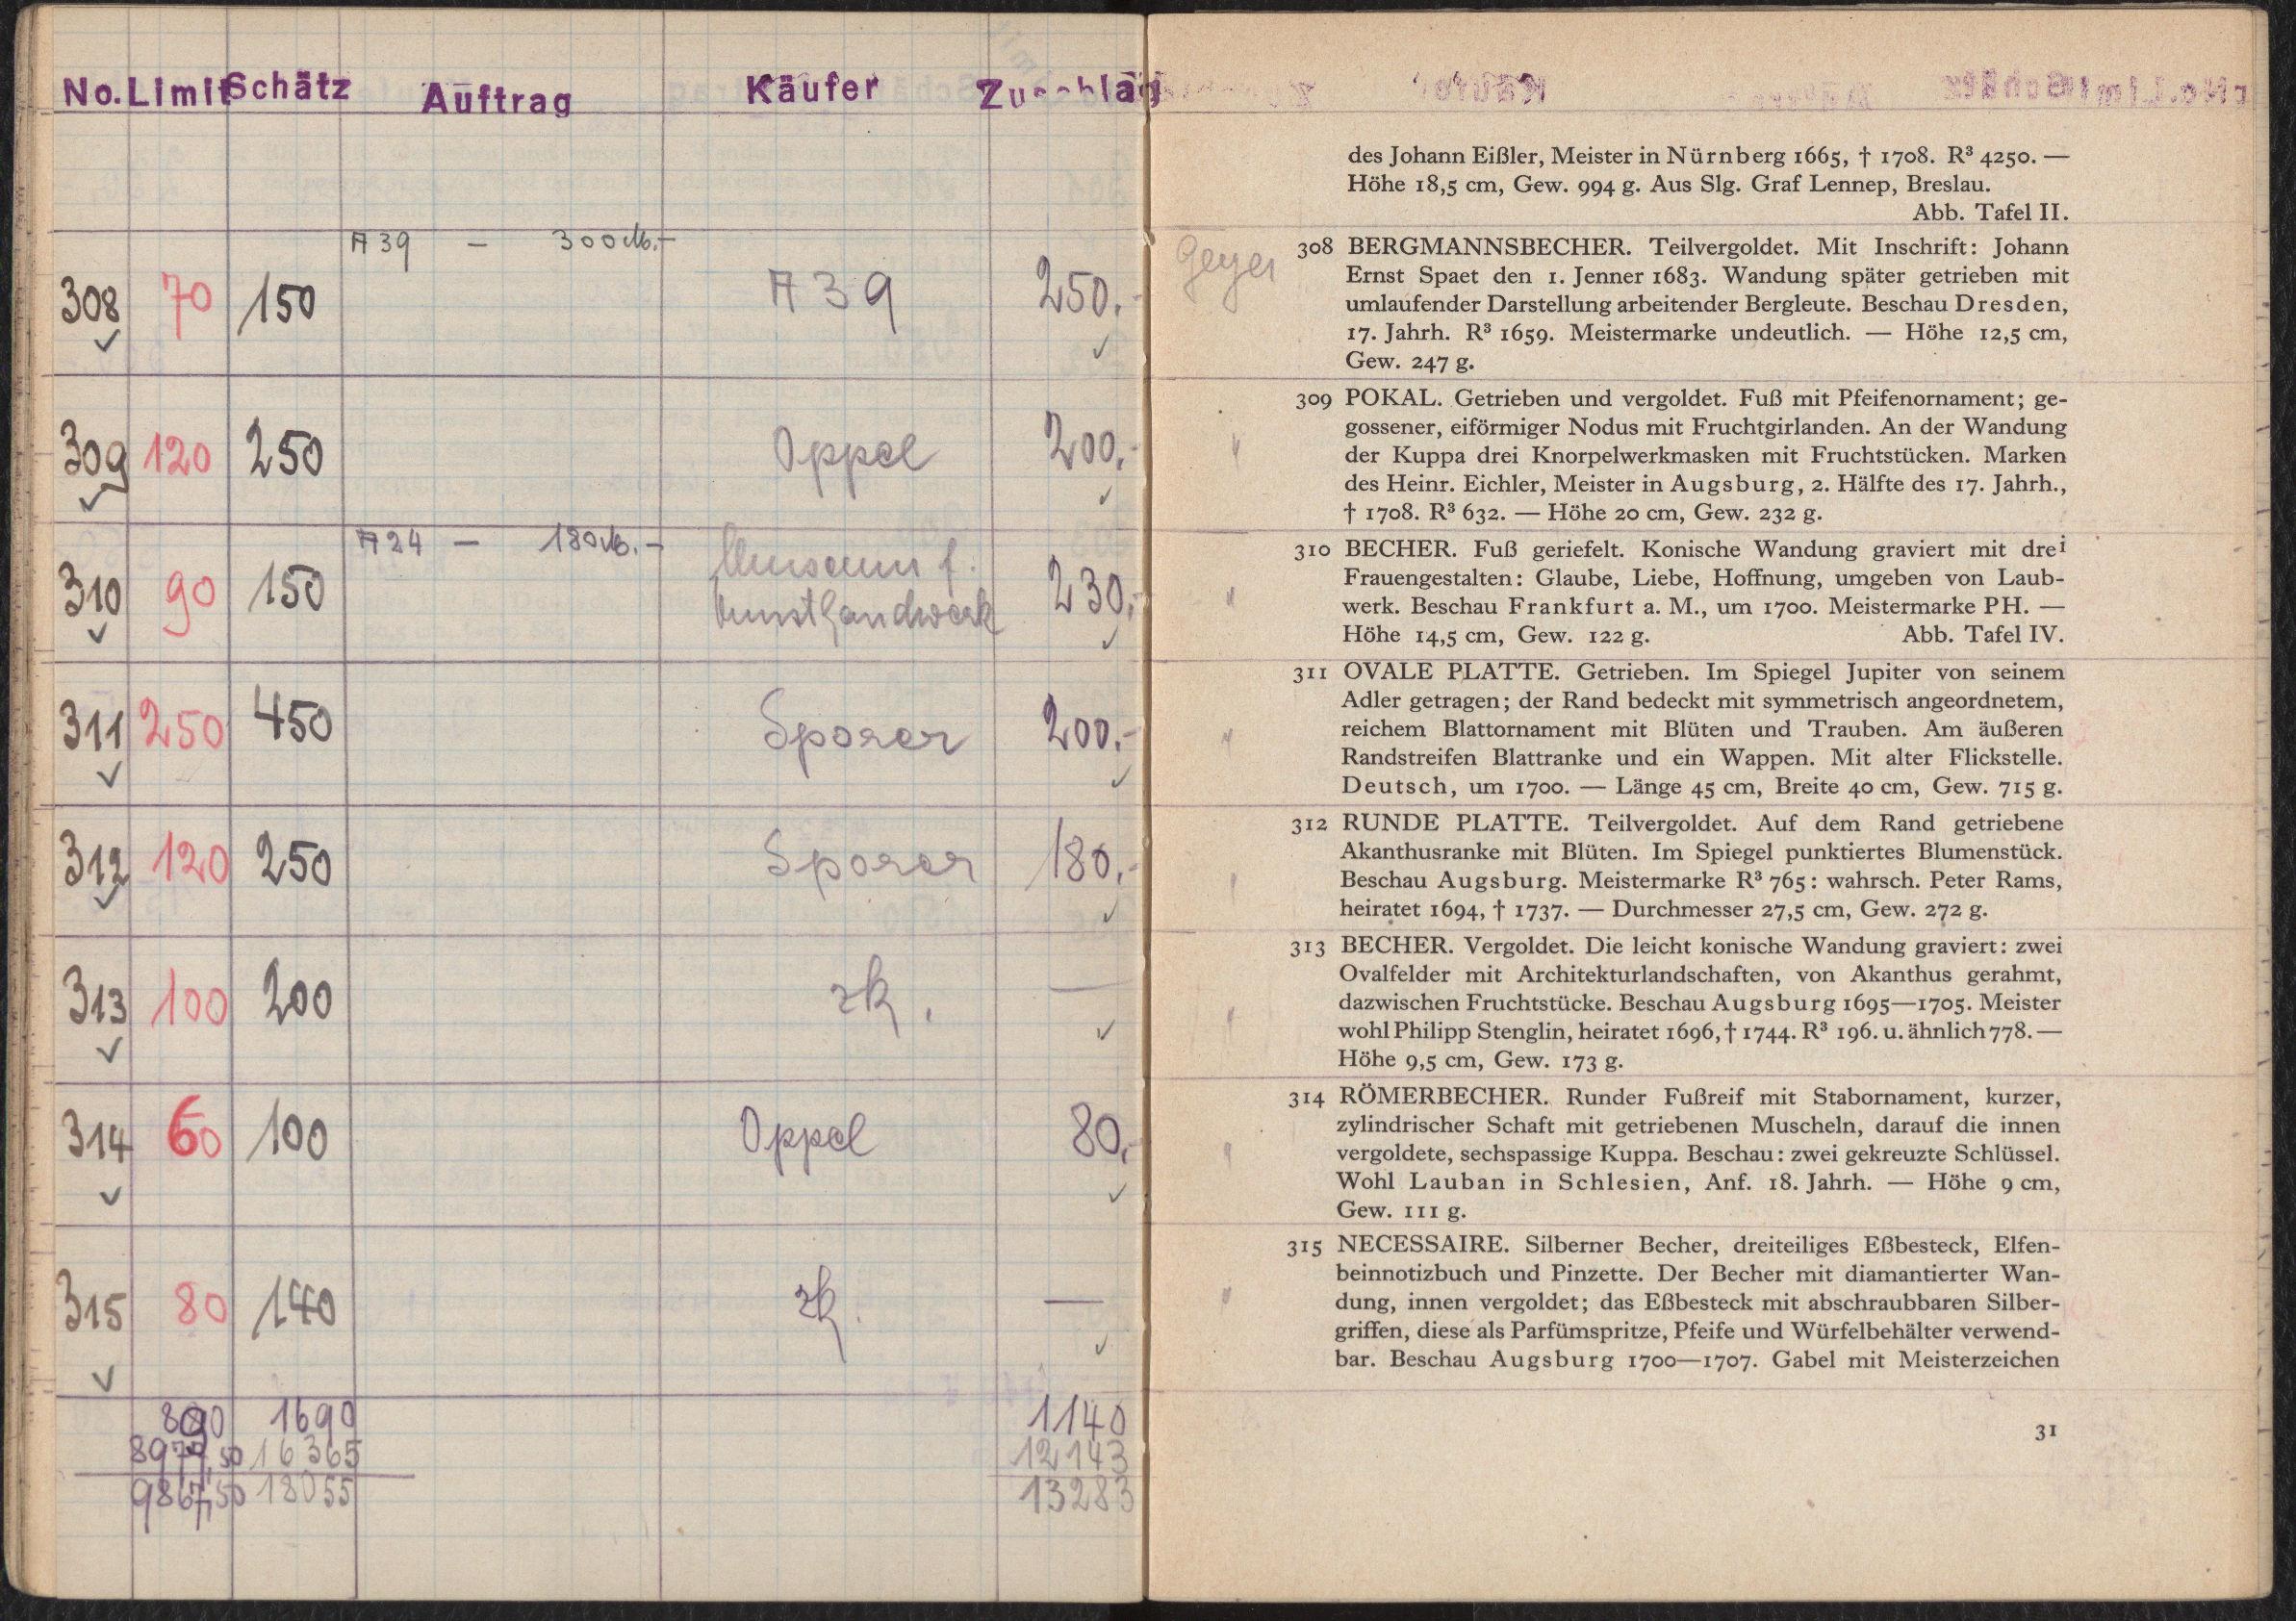 No. Limit Schätz Auftrag Käufer Zuschlag
A 39 — 300 M.-
308 70 150 A 39 250.-
309 120 250 Oppel 200.-
A 24 — 180 M.-
Museum f.
310 90 150 Kunsthandwerk 230.-
311 250 450 Sporer 200.-
312 120 250 Sporer 180.-
313 100 200 zk. —
314 60 100 Oppel 80.-
315 80 140 zk. —
890 1690 1140
8977,50 16365 12143
9867,50 18055 13283
des Johann Eißler, Meister in Nürnberg 1665, † 1708. R³ 4250. —
Höhe 18,5 cm, Gew. 994 g. Aus Slg. Graf Lennep, Breslau.
Abb. Tafel II.
Geyer
308 BERGMANNSBECHER. Teilvergoldet. Mit Inschrift: Johann
Ernst Spaet den 1. Jenner 1683. Wandung später getrieben mit
umlaufender Darstellung arbeitender Bergleute. Beschau Dresden,
17. Jahrh. R³ 1659. Meistermarke undeutlich. — Höhe 12,5 cm,
Gew. 247 g.
309 POKAL. Getrieben und vergoldet. Fuß mit Pfeifenornament; ge-
gossener, eiförmiger Nodus mit Fruchtgirlanden. An der Wandung
der Kuppa drei Knorpelwerkmasken mit Fruchtstücken. Marken
des Heinr. Eichler, Meister in Augsburg, 2. Hälfte des 17. Jahrh.,
† 1708. R³ 632. — Höhe 20 cm, Gew. 232 g.
310 BECHER. Fuß geriefelt. Konische Wandung graviert mit drei
Frauengestalten: Glaube, Liebe, Hoffnung, umgeben von Laub-
werk. Beschau Frankfurt a. M., um 1700. Meistermarke PH. —
Höhe 14,5 cm, Gew. 122 g. Abb. Tafel IV.
311 OVALE PLATTE. Getrieben. Im Spiegel Jupiter von seinem
Adler getragen; der Rand bedeckt mit symmetrisch angeordnetem,
reichem Blattornament mit Blüten und Trauben. Am äußeren
Randstreifen Blattranke und ein Wappen. Mit alter Flickstelle.
Deutsch, um 1700. — Länge 45 cm, Breite 40 cm, Gew. 715 g.
312 RUNDE PLATTE. Teilvergoldet. Auf dem Rand getriebene
Akanthusranke mit Blüten. Im Spiegel punktiertes Blumenstück.
Beschau Augsburg. Meistermarke R³ 765: wahrsch. Peter Rams,
heiratet 1694, † 1737. — Durchmesser 27,5 cm, Gew. 272 g.
313 BECHER. Vergoldet. Die leicht konische Wandung graviert: zwei
Ovalfelder mit Architekturlandschaften, von Akanthus gerahmt,
dazwischen Fruchtstücke. Beschau Augsburg 1695—1705. Meister
wohl Philipp Stenglin, heiratet 1696, † 1744. R³ 196. u. ähnlich 778. —
Höhe 9,5 cm, Gew. 173 g.
314 RÖMERBECHER. Runder Fußreif mit Stabornament, kurzer,
zylindrischer Schaft mit getriebenen Muscheln, darauf die innen
vergoldete, sechspassige Kuppa. Beschau: zwei gekreuzte Schlüssel.
Wohl Lauban in Schlesien, Anf. 18. Jahrh. — Höhe 9 cm,
Gew. 111 g.
315 NECESSAIRE. Silberner Becher, dreiteiliges Eßbesteck, Elfen-
beinnotizbuch und Pinzette. Der Becher mit diamantierter Wan-
dung, innen vergoldet; das Eßbesteck mit abschraubbaren Silber-
griffen, diese als Parfümspritze, Pfeife und Würfelbehälter verwend-
bar. Beschau Augsburg 1700—1707. Gabel mit Meisterzeichen
31